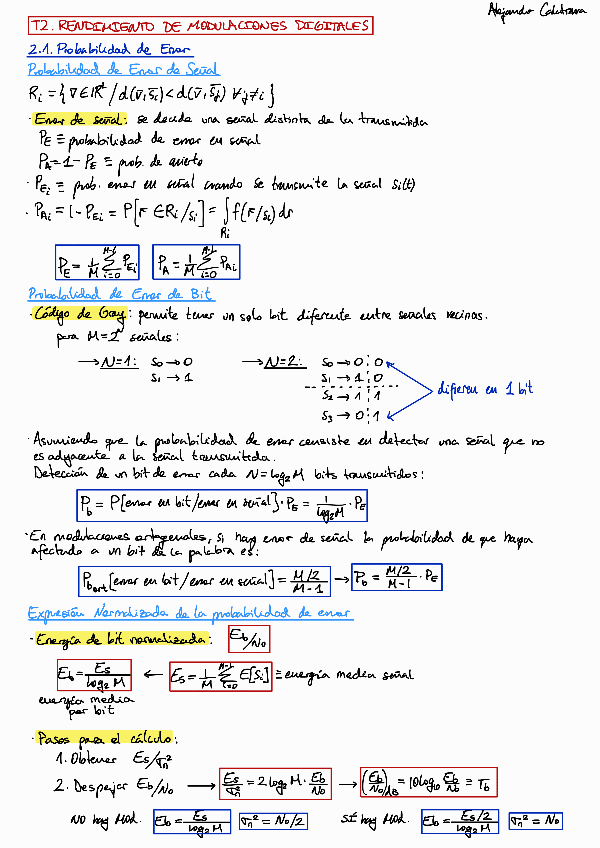 Alejandro
T2. RENDIMIENTO DE MODULACIONES DIGITALES
2.1. Probabilidad de Error
Probabilidad de Error de Señal
Ri = { v̄ ∈ ℝᴸ / d(v̄, s̄i) < d(v̄, s̄j) ∀ j≠i }
· Error de señal: se decide una señal distinta de la transmitida
PE ≡ probabilidad de error en señal
PA = 1 - PE ≡ prob. de acierto
· PEi ≡ prob. error en señal cuando se transmite la señal si(t)
· PAi = 1 - PEi = P[r̄ ∈ Ri / si] = ∫Ri f(r̄/si) dr
PE = 1/M ∑_{i=0}^{M-1} PEi   PA = 1/M ∑_{i=0}^{M-1} PAi
Probabilidad de Error de Bit
· Código de Gray: permite tener un solo bit diferente entre señales vecinas.
para M=2ᴺ señales:
→ N=1: S0 → 0   → N=2: S0 → 0 0
S1 → 1   S1 → 1 0
S2 → 1 1   difieren en 1 bit
S3 → 0 1
· Asumiendo que la probabilidad de error consiste en detectar una señal que no
es adyacente a la señal transmitida.
Detección de un bit de error cada N = log2 M bits transmitidos:
Pb = P[error en bit / error en señal] · PE = 1/log2 M · PE
· En modulaciones ortogonales, si hay error de señal la probabilidad de que haya
afectado a un bit de la palabra es:
Pb ort [error en bit / error en señal] = (M/2)/(M-1) → Pb = (M/2)/(M-1) · PE
Expresión Normalizada de la probabilidad de error
· Energía de bit normalizada: Eb/N0
Eb = Es/log2 M ← Es = 1/M ∑_{i=0}^{M-1} E[si] ≡ energía media señal
energía media
por bit
· Pasos para el cálculo:
1. Obtener Es/σn²
2. Despejar Eb/N0 → Es/σn² = 2 log2 M · Eb/N0 → (Eb/N0)dB = 10 log10 Eb/N0 ≡ Tb
NO hay Mod. Eb = Es/log2 M   σn² = N0/2   SÍ hay Mod. Eb = (Es/2)/log2 M   σn² = N0